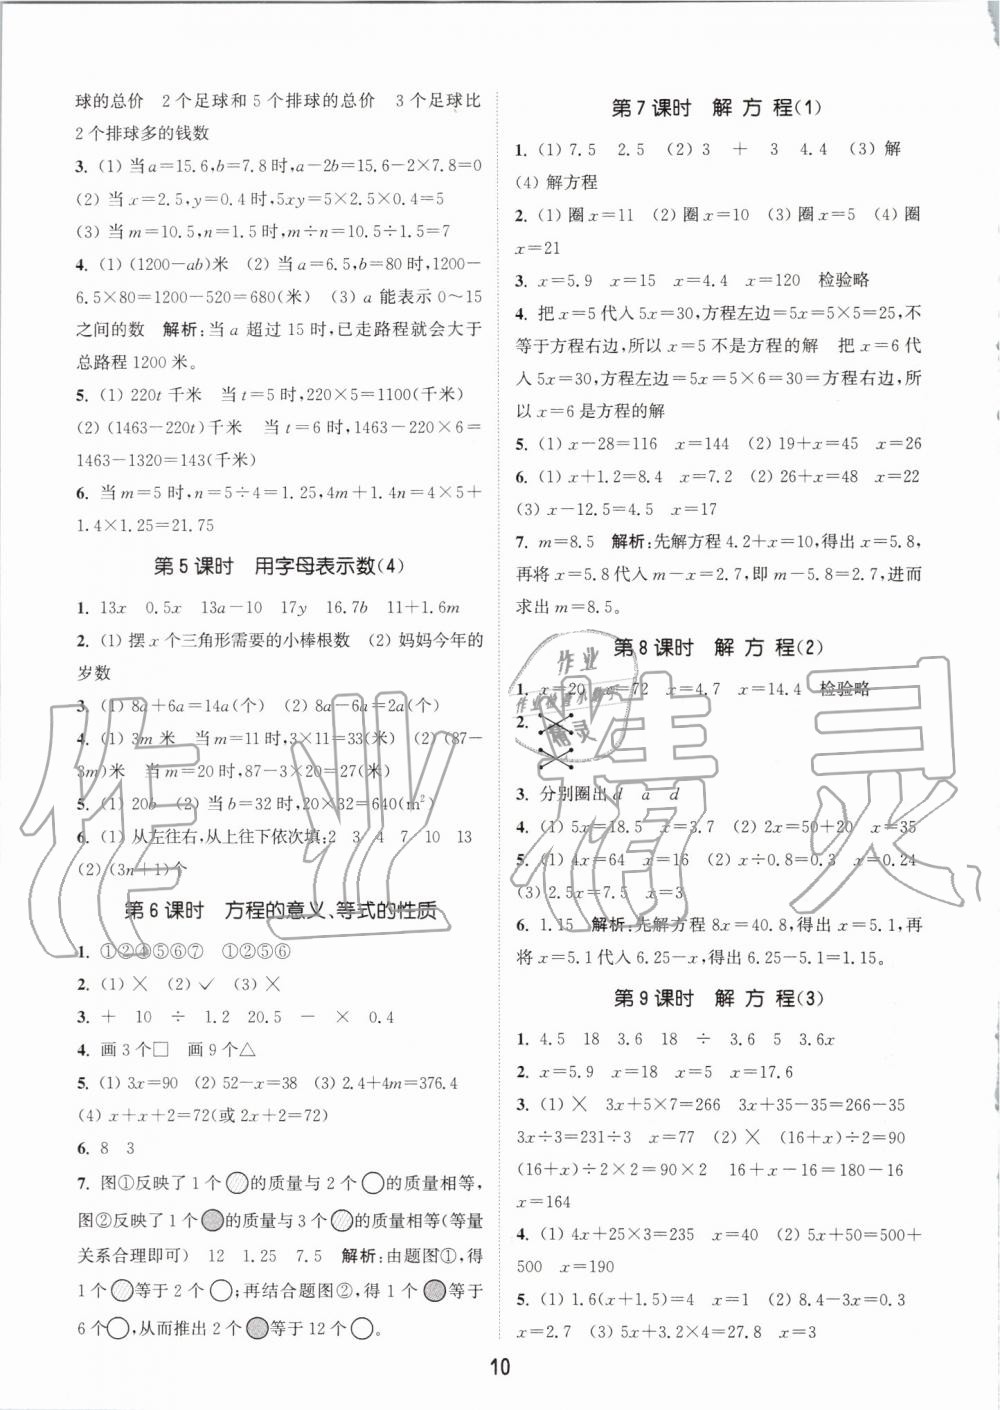 球的总价　2个足球和5个排球的总价　3个足球比
2个排球多的钱数
3. (1) 当a=15.6,b=7.8时,a-2b=15.6-2×7.8=0
(2) 当x=2.5,y=0.4时,5xy=5×2.5×0.4=5
(3) 当m=10.5,n=1.5时,m÷n=10.5÷1.5=7
4. (1) (1200-ab)米　(2) 当a=6.5,b=80时,1200-
6.5×80=1200-520=680(米)　(3) a能表示0~15
之间的数　解析:当a超过15时,已走路程就会大于
总路程1200米。
5. (1) 220t千米　当t=5时,220×5=1100(千米)
(2) (1463-220t)千米　当t=6时,1463-220×6=
1463-1320=143(千米)
6. 当m=5时,n=5÷4=1.25,4m+1.4n=4×5+
1.4×1.25=21.75
第5课时　用字母表示数(4)
1. 13x　0.5x　13a-10　17y　16.7b　11+1.6m
2. (1) 摆x个三角形需要的小棒根数　(2) 妈妈今年的
岁数
3. (1) 8a+6a=14a(个)　(2) 8a-6a=2a(个)
4. (1) 3m米　当m=11时,3×11=33(米)　(2) (87-
3m)米　当m=20时,87-3×20=27(米)
5. (1) 20b　(2) 当b=32时,20×32=640(m²)
6. (1) 从左往右,从上往下依次填:2　3　4　7　10　13
(2) (3n+1)个
第6课时　方程的意义、等式的性质
1. ①②④⑤⑥⑦　①②⑤⑥
2. (1) ×　(2) ✓　(3) ×
3. +　10　÷　1.2　20.5　-　×　0.4
4. 画3个□　画9个△
5. (1) 3x=90　(2) 52-x=38　(3) 2.4+4m=376.4
(4) x+x+2=72(或2x+2=72)
6. 8　3
7. 图①反映了1个○的质量与2个○的质量相等,
图②反映了1个●的质量与3个○的质量相等(等量
关系合理即可)　12　1.25　7.5　解析:由题图①,得
1个○等于2个○;再结合题图②,得1个●等于
6个○,从而推出2个●等于12个○。
第7课时　解方程(1)
1. (1) 7.5　2.5　(2) 3　+　3　4.4　(3) 解
(4) 解方程
2. (1) 圈x=11　(2) 圈x=10　(3) 圈x=5　(4) 圈
x=21
3. x=5.9　x=15　x=4.4　x=120　检验略
4. 把x=5代入5x=30,方程左边=5x=5×5=25,不
等于方程右边,所以x=5不是方程的解　把x=6代
入5x=30,方程左边=5x=5×6=30=方程右边,所
以x=6是方程的解
5. (1) x-28=116　x=144　(2) 19+x=45　x=26
6. (1) x+1.2=8.4　x=7.2　(2) 26+x=48　x=22
(3) x-12.5=4.5　x=17
7. m=8.5　解析:先解方程4.2+x=10,得出x=5.8,
再将x=5.8代入m-x=2.7,即m-5.8=2.7,进而
求出m=8.5。
第8课时　解方程(2)
1. x=20　x=72　x=4.7　x=14.4　检验略
2.
3. 分别圈出d　a　d
4. (1) 5x=18.5　x=3.7　(2) 2x=50+20　x=35
5. (1) 4x=64　x=16　(2) x÷0.8=0.3　x=0.24
(3) 2.5x=7.5　x=3
6. 1.15　解析:先解方程8x=40.8,得出x=5.1,再
将x=5.1代入6.25-x,得出6.25-5.1=1.15。
第9课时　解方程(3)
1. 4.5　18　3.6　18　÷　3.6　5　3.6x
2. x=5.9　x=18　x=5　x=17.6
3. (1) ×　3x+5×7=266　3x+35-35=266-35
3x÷3=231÷3　x=77　(2) ×　(16+x)÷2=90
(16+x)÷2×2=90×2　16+x-16=180-16
x=164
4. (1) 4x+25×3=235　x=40　(2) 5x=500+
500　x=190
5. (1) 1.6(x+1.5)=4　x=1　(2) 8.4-3x=0.3
x=2.7　(3) 5x+3.2×4=27.8　x=3
10
作业精灵